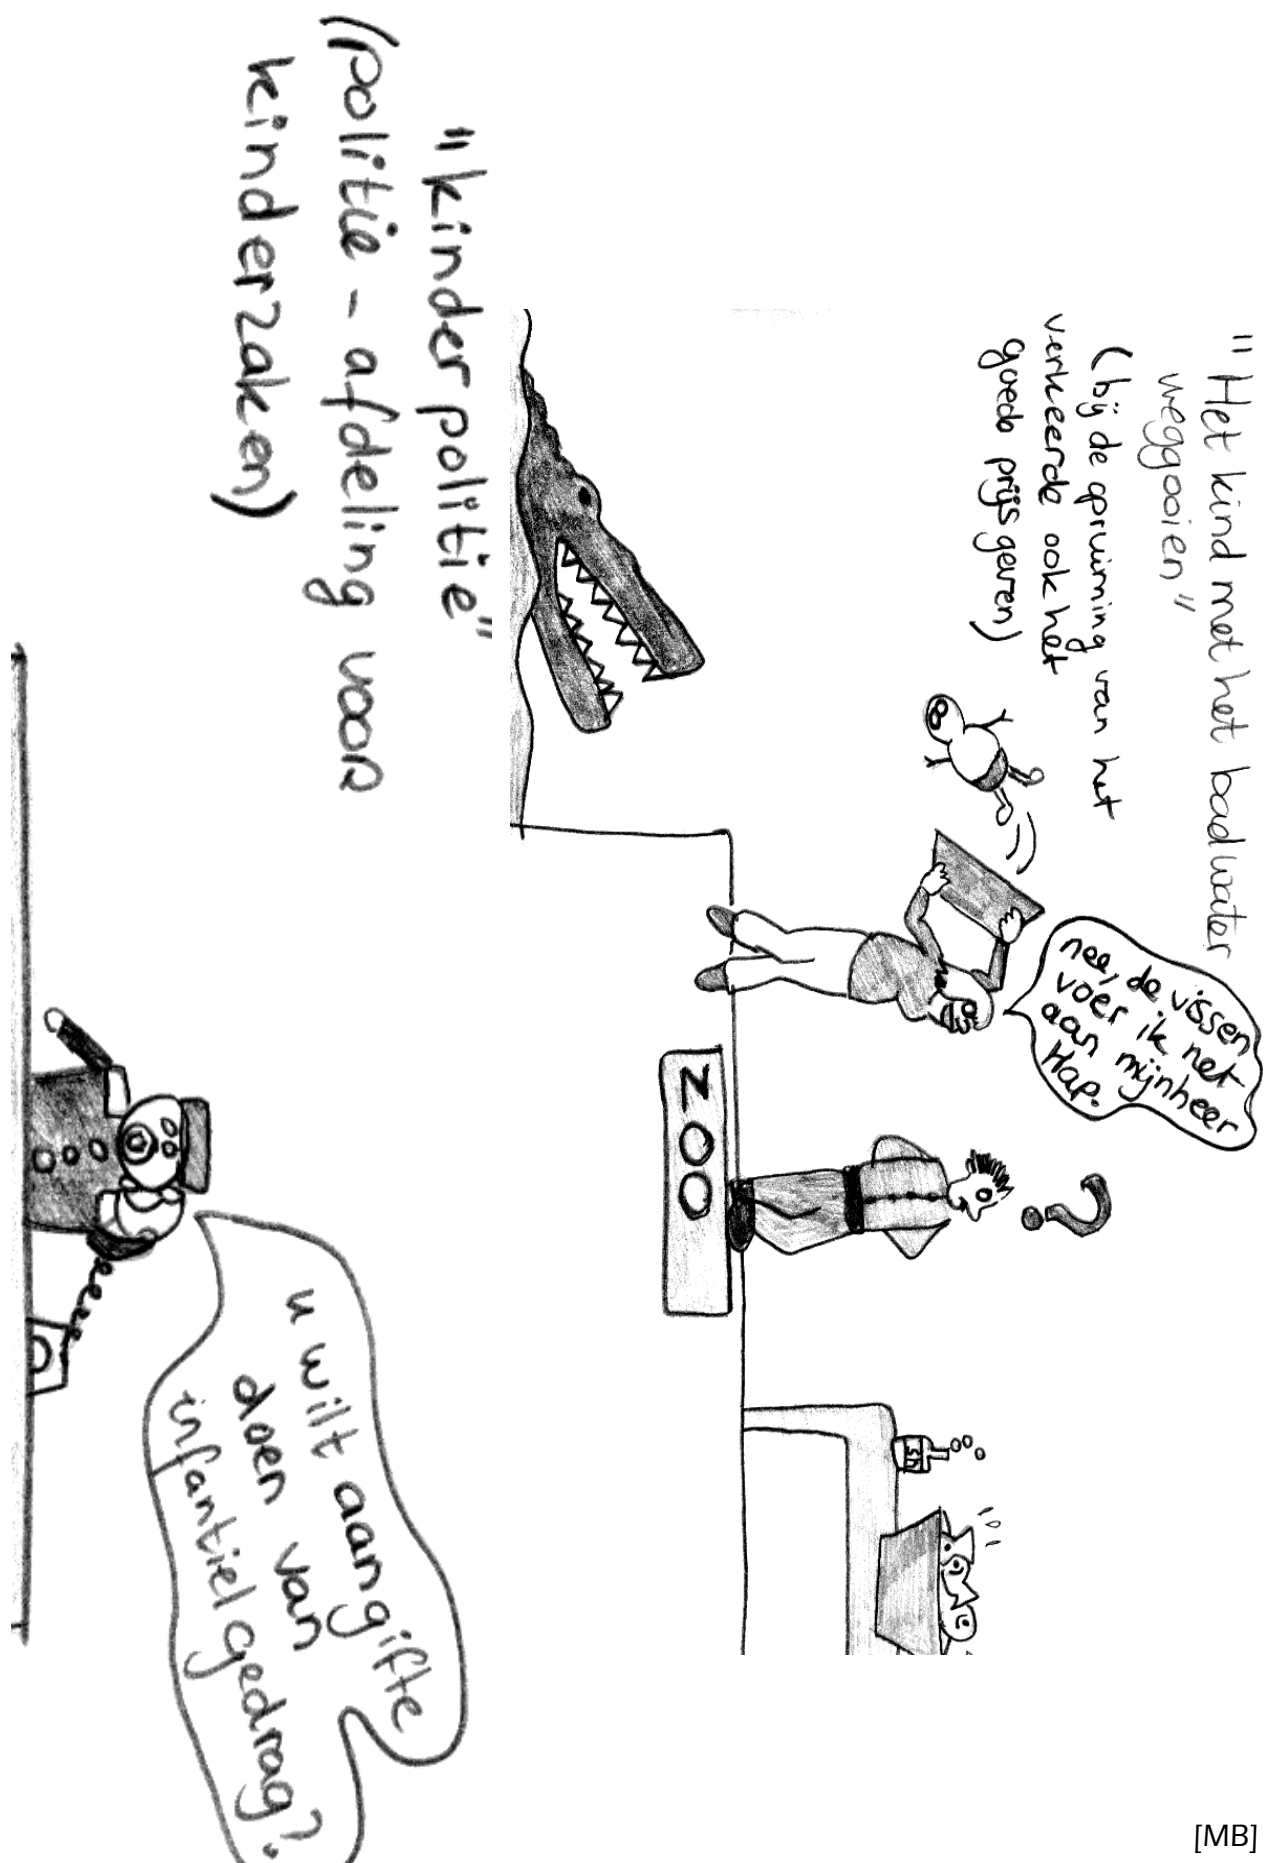 "Het kind met het badwater
weggooien"
(bij de opruiming van het
verkeerde ook het
goede prijsgeven)
nee, de vissen
voer ik net
aan mijnheer
Hap.
ZOO
"kinderpolitie"
(politie - afdeling voor
kinderzaken)
u wilt aangifte
doen van
infantiel gedrag?
[MB]